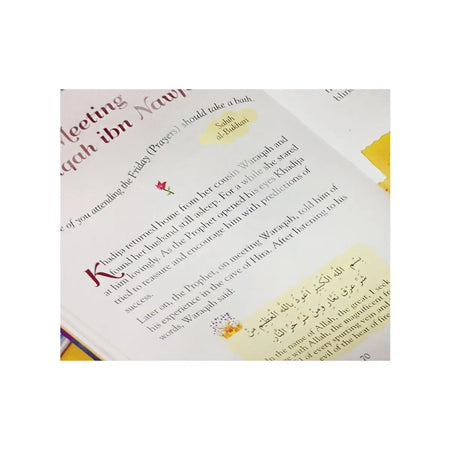 Meeting
qah ibn Nawf
e of you attending the Friday (Prayers) should take a bath.
Sahih
al-Bukhari
Khadija returned home from her cousin Waraqah and
found her husband still asleep. For a while she stared
at him lovingly. As the Prophet opened his eyes Khadija
tried to reassure and encourage him with predictions of
success.
Later on, the Prophet, on meeting Waraqah, told him of
his experience in the cave of Hira. After listening to his
words, Waraqah said:
بسم الله الكبير أعوذ بالله العظيم من
شر عرق نعار ومن شر حر النار
In the name of Allah, the great, I seek
ge with Allah, the magnificent fr
l of every spurting vein and
evil of the heat of fire
70
blin